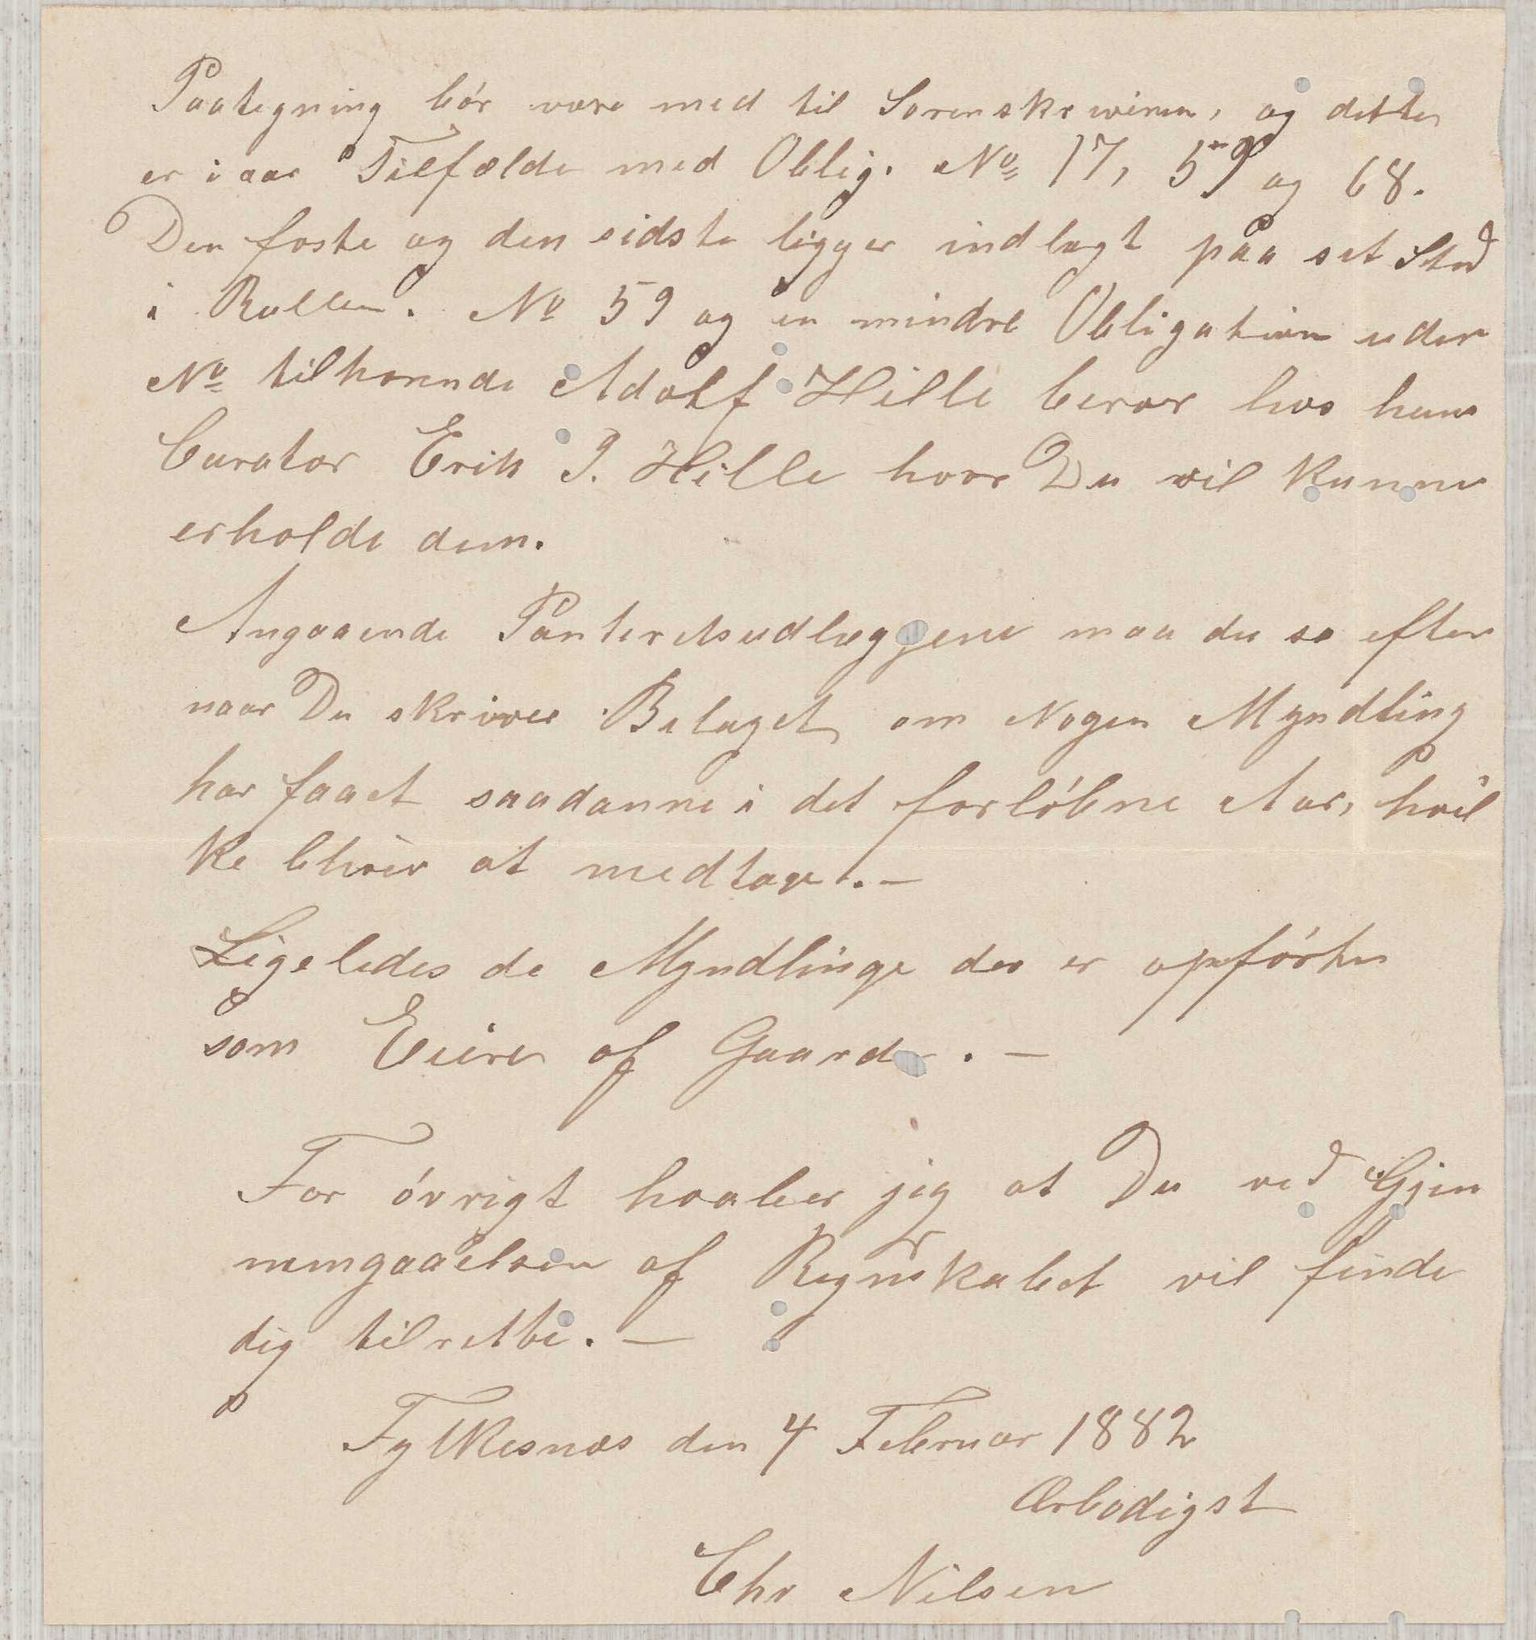 Paategning bør være med til Sorenskriveren, og dette
er i aar Tilfælde med Oblig. No 17, 59 og 68.
Den første og den sidste ligger indlagt paa set Sted
i Rullen. No 59 og en mindre Obligation uden
No tilhørende Adolf Hille beror hos hans
Curator Erik P. Hille hvor Du vil kunne
erholde dem.
Angaaende Panteretsudlæggene maa du se efter
naar Du skriver Belaget om Nogen Myndling
har faaet saadanne i det forløbne Aar, hvil
ke bliver at medtage. —
Ligeledes de Myndlinge der er opførte
som Eiere af Gaarde. —
For øvrigt haaber jeg at Du ved Gjen
nemgaaelsen af Regnskabet vil finde
dig tilrette. —
Fylkesnæs den 4 Februar 1882
Ærbødigst
Chr Nilsen